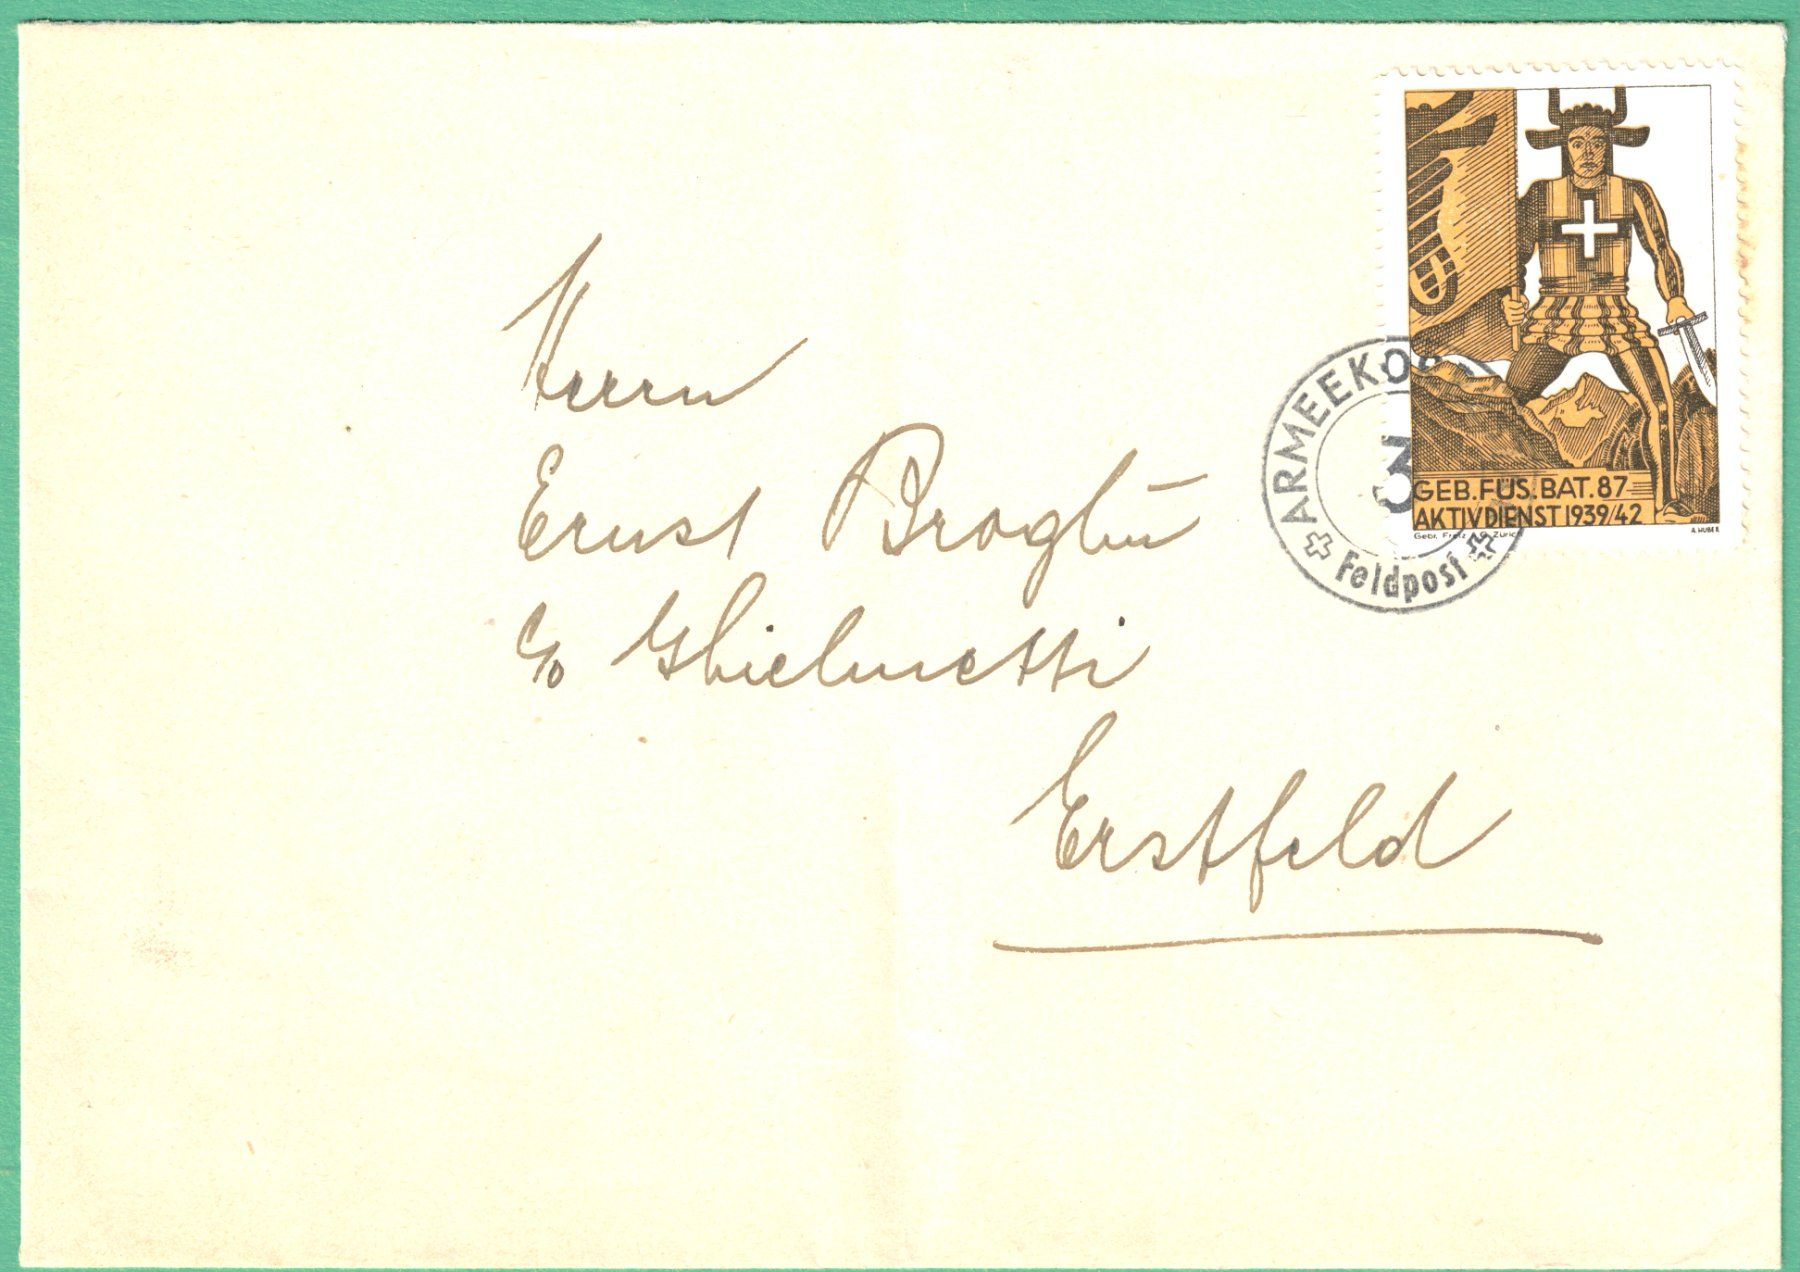 Herrn
Ernst Broglin
c/o Ghielmetti
Erstfeld
ARMEEKO
3
Feldpost
GEB. FÜS. BAT. 87
AKTIVDIENST 1939/42
Gebr. Zürich
A. HUBER